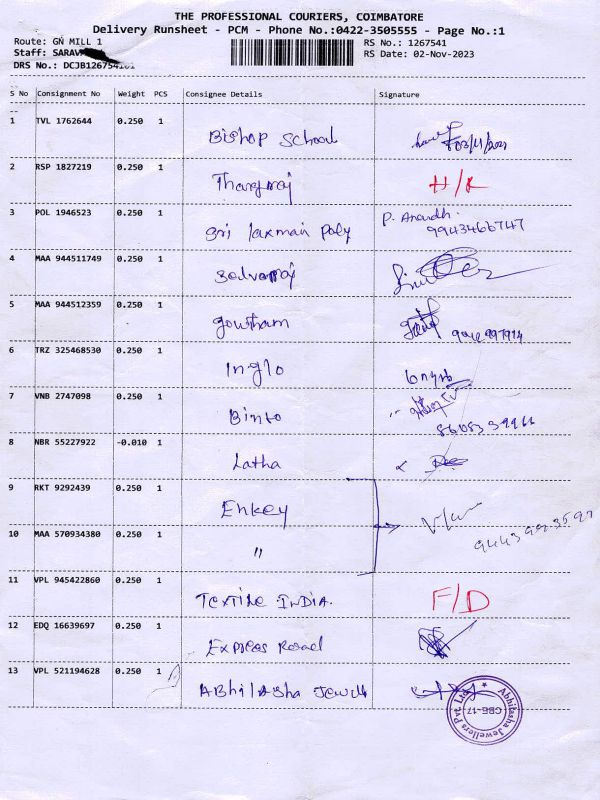 THE PROFESSIONAL COURIERS, COIMBATORE
Delivery Runsheet - PCM - Phone No.:0422-3505555 - Page No.:1
Route: GN MILL 1 RS No.: 1267541
Staff: RS Date: 02-Nov-2023
DRS No.:
S No Consignment No Weight PCS Consignee Details Signature
1 TVL 1762644 0.250 1 Bishop School
2 RSP 1827219 0.250 1 Thangaraj H/R
3 POL 1946523 0.250 1 Sri laxman Poly P. Anandh.
9943466747
4 MAA 944511749 0.250 1 Selvaraj
5 MAA 944512359 0.250 1 goutham
6 TRZ 325468530 0.250 1 Inglo
7 VNB 2747098 0.250 1 Binto
8 NBR 55227922 -0.010 1 Latha
9 RKT 9292439 0.250 1 Enkey
10 MAA 570934380 0.250 1 "
11 VPL 945422860 0.250 1 Textile INDIA. F/D
12 EDQ 16639697 0.250 1 Express Road
13 VPL 521194628 0.250 1 Abhilasha Jewell
Abhilasha Jewellers Pvt. Ltd.
CBE-17